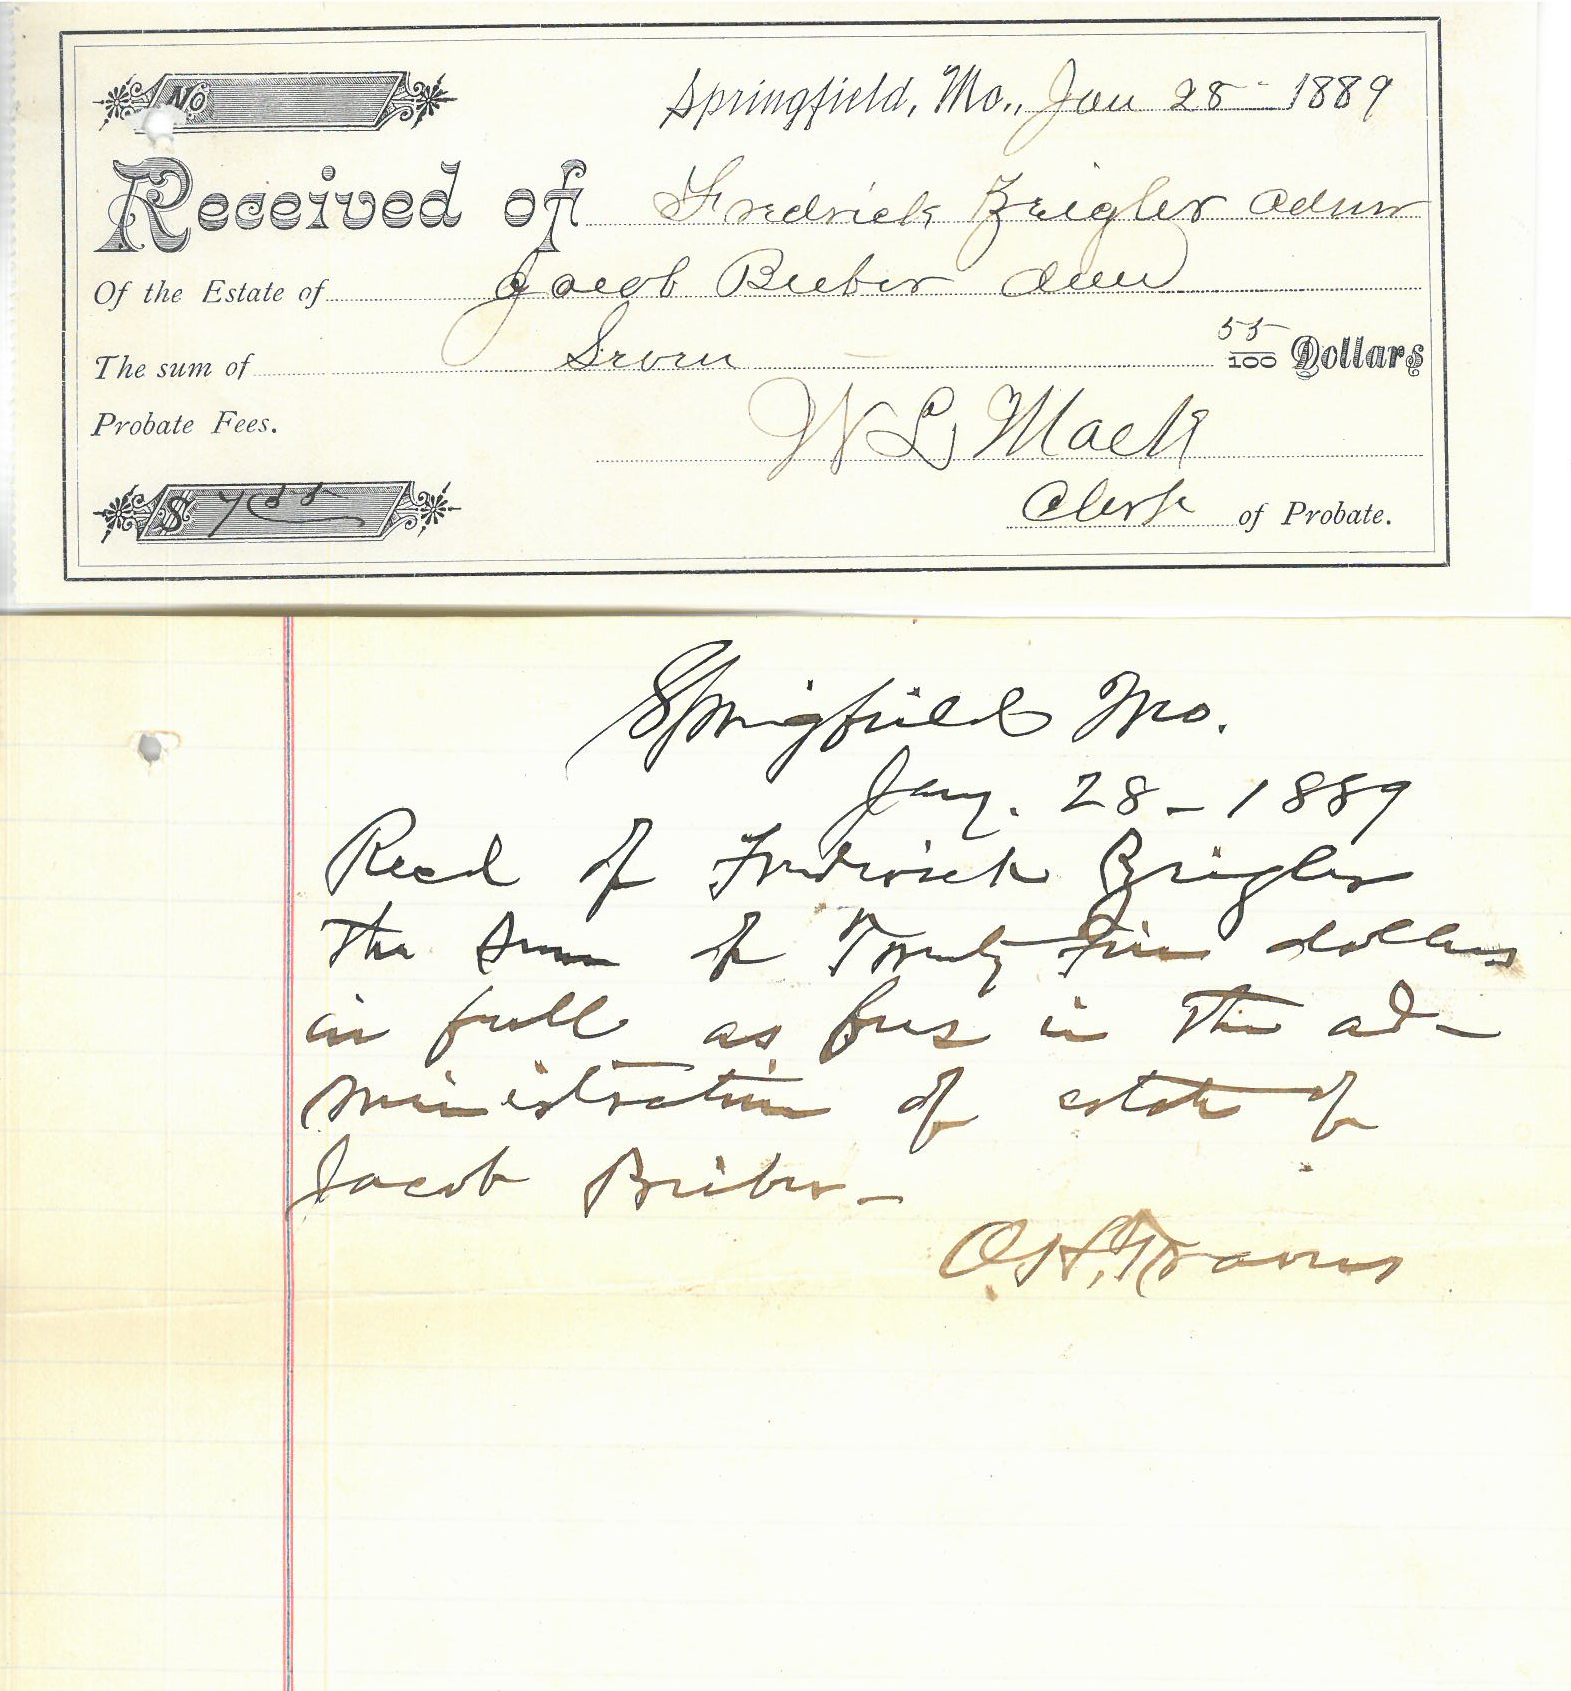 No
Springfield, Mo., Jan 28 - 1889
Received of Fredrick Zeigler Admr
Of the Estate of Jacob Bieber decd
The sum of Seven — 55/100 Dollars
Probate Fees.
W L Mack
$ 7 55
Clerk of Probate.
Springfield Mo.
Jany. 28 - 1889
Recd of Fredrick Zeigler
the sum of Twenty Five dollars
in full as fees in the ad-
ministration of estate of
Jacob Bieber -
O. H. Travers